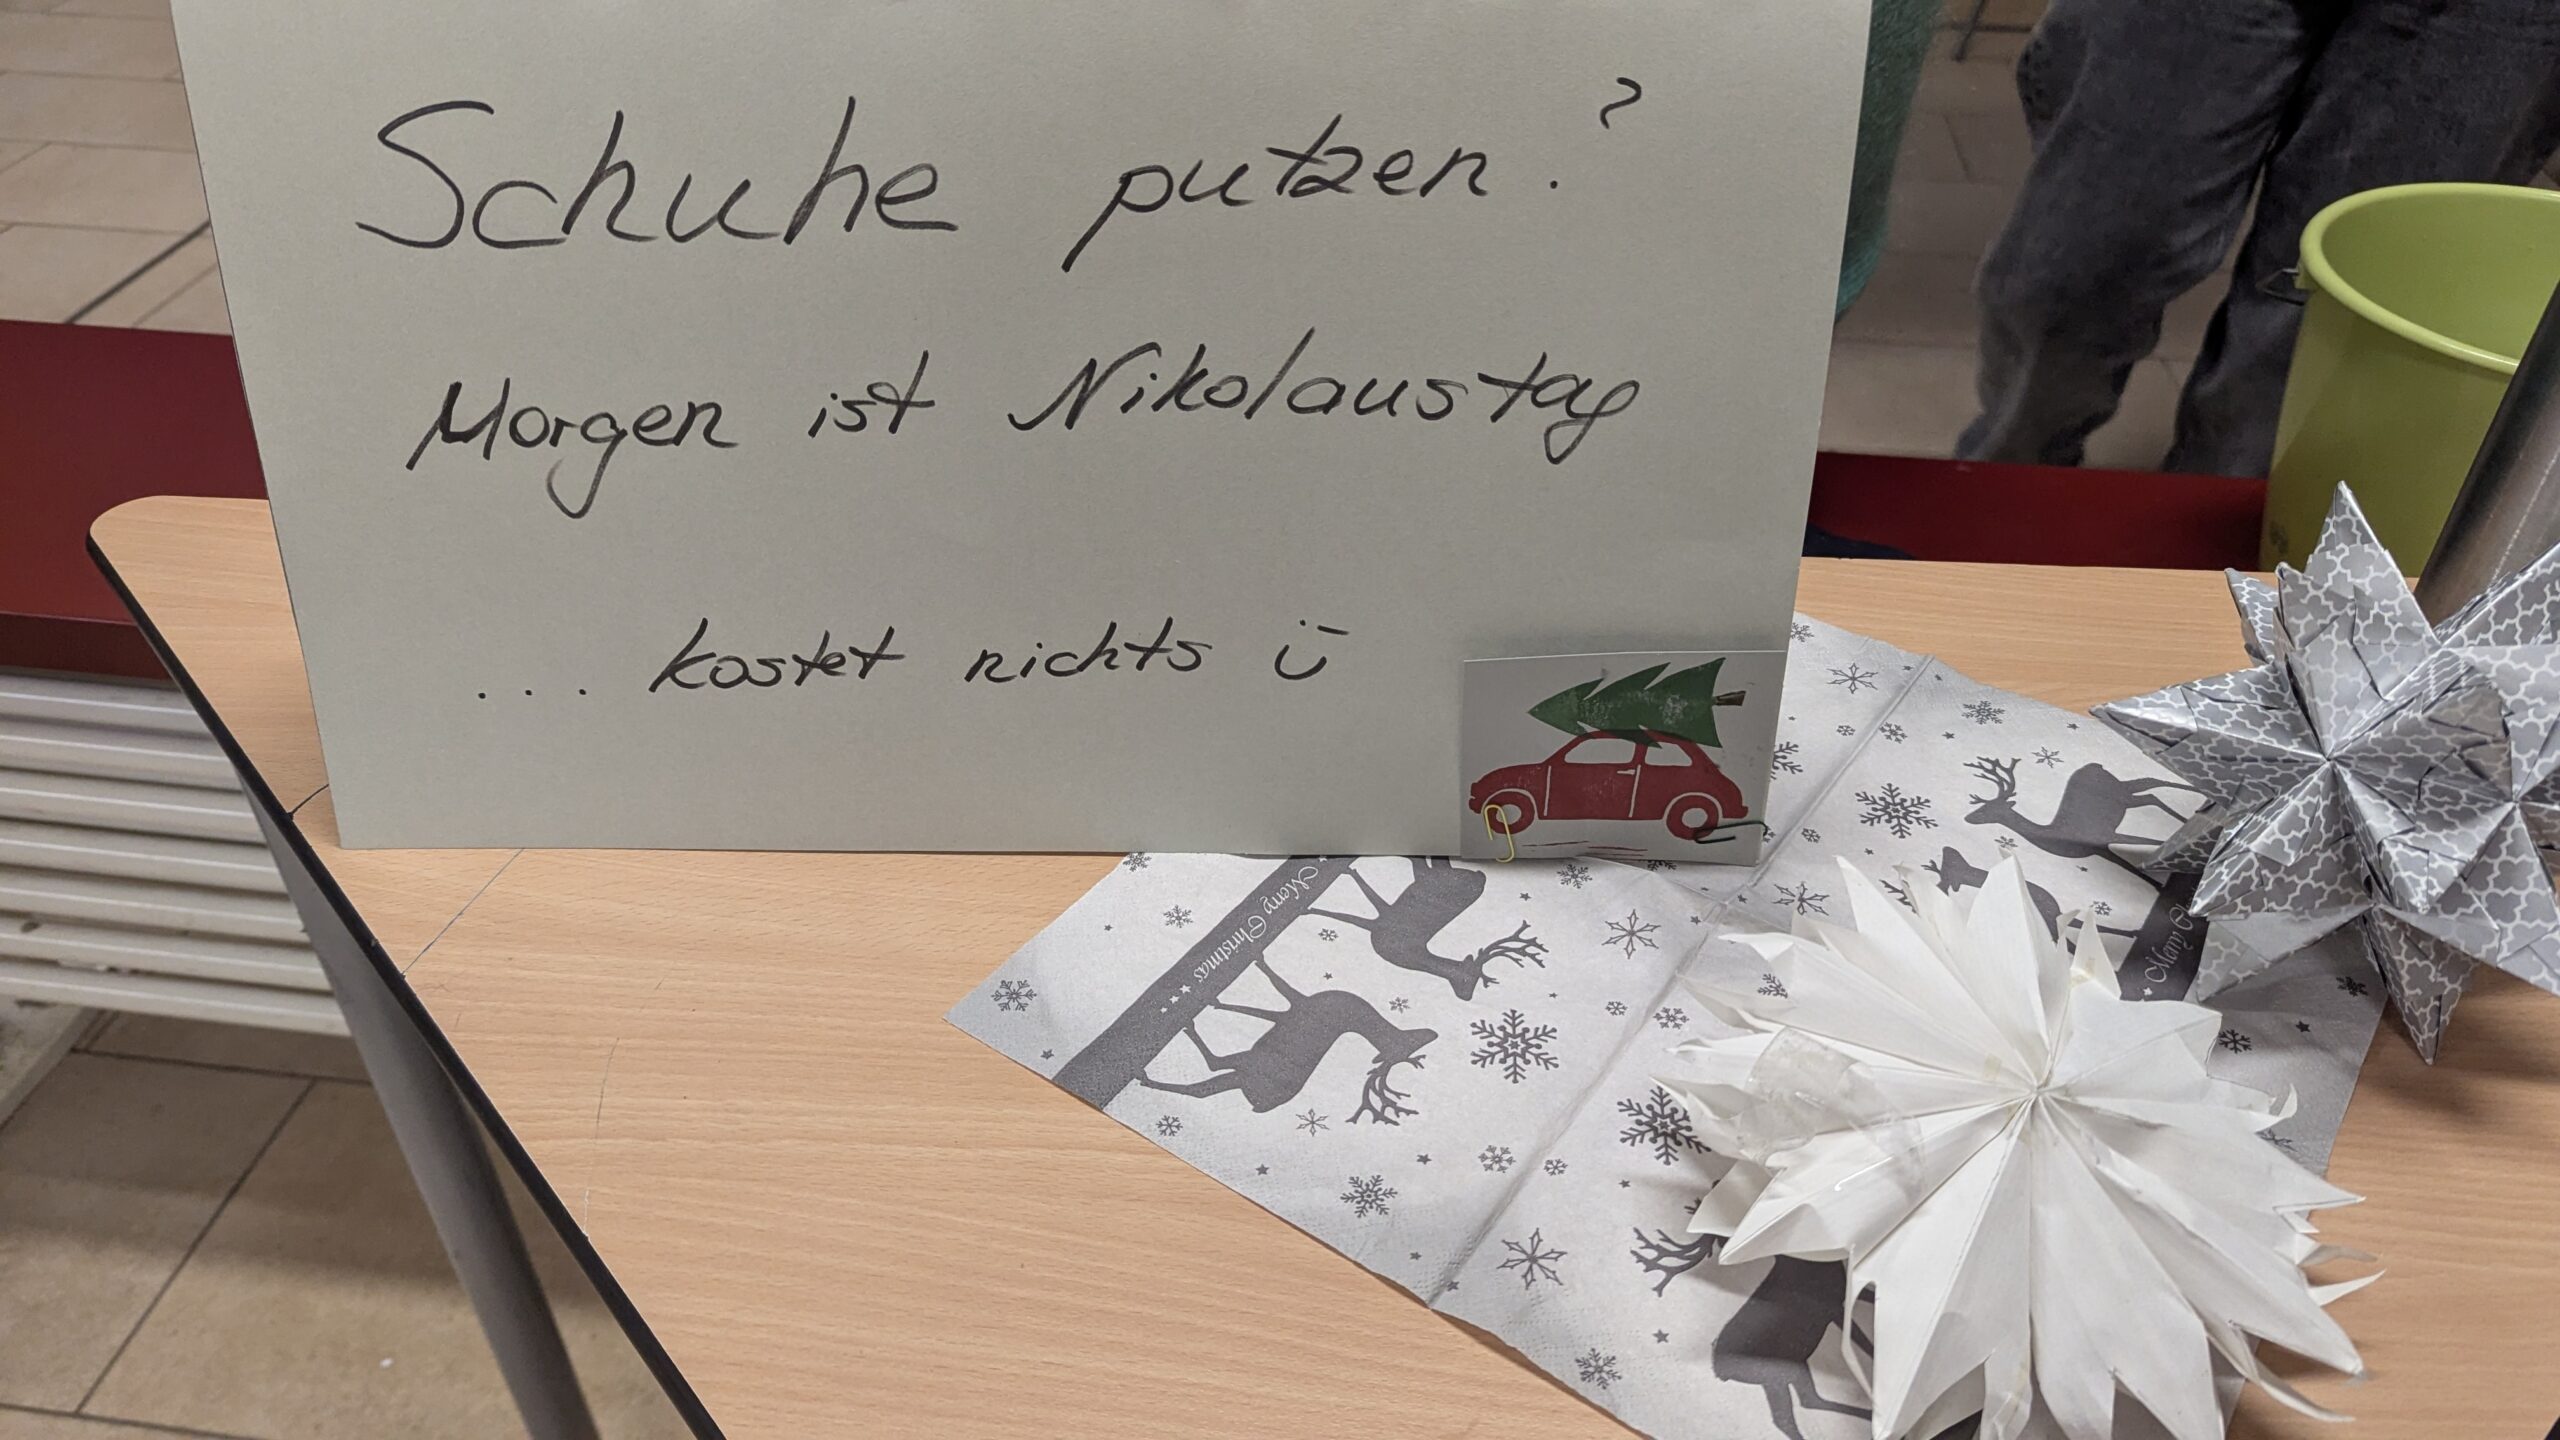 Schuhe putzen?
Morgen ist Nikolaustag
... kostet nichts ü
Merry Christmas
Merry